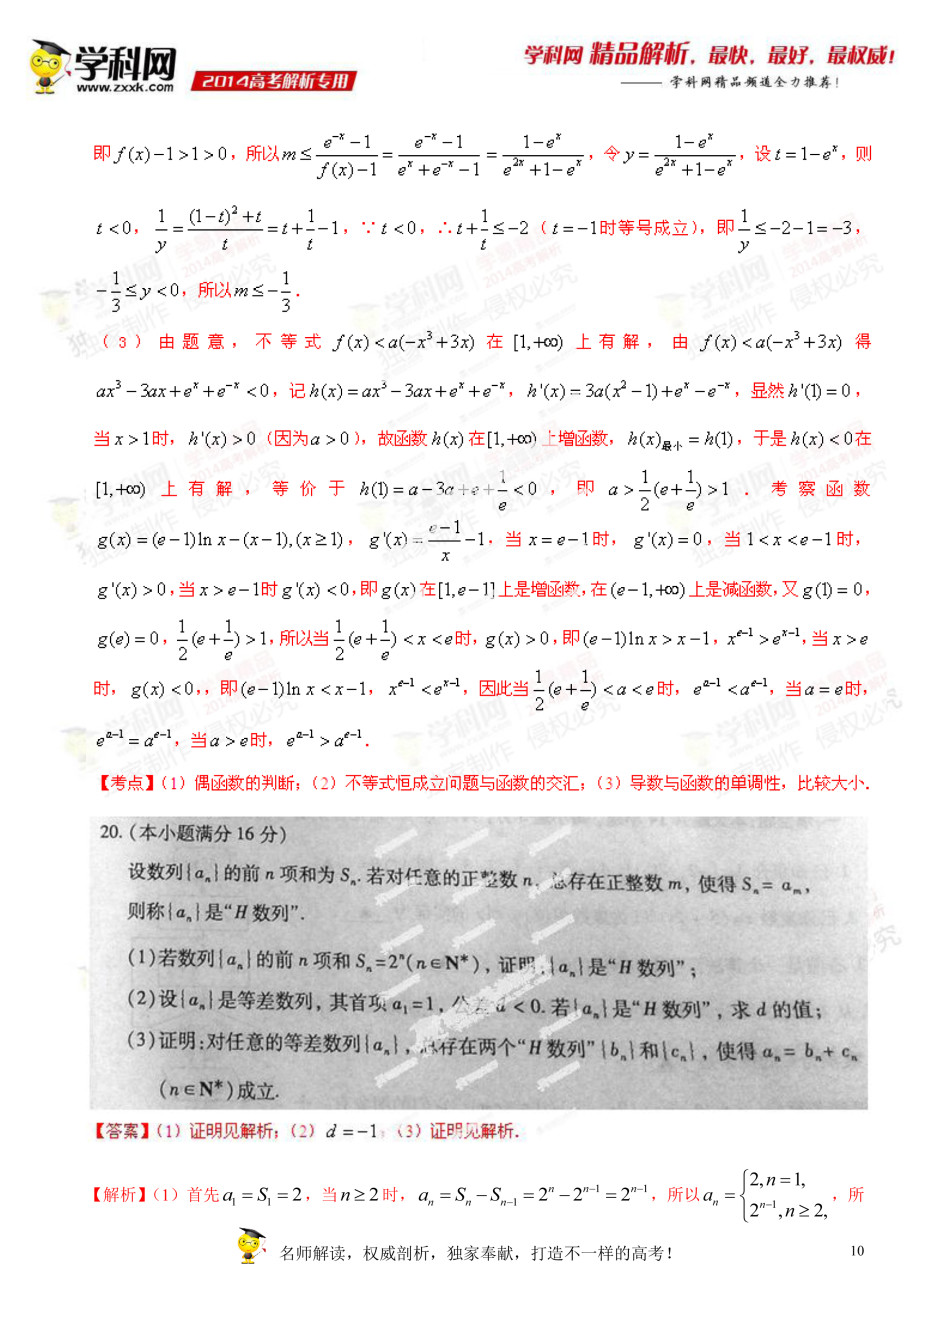 学科网
www.zxxk.com
2014高考解析专用
学科网 精品解析，最快，最好，最权威!
—— 学科网精品频道全力推荐!
即 f(x)−1>1>0，所以 m ≤ (e^{−x}−1)/(f(x)−1) = (e^{−x}−1)/(e^x+e^{−x}−1) = (1−e^x)/(e^{2x}+1−e^x)，令 y = (1−e^x)/(e^{2x}+1−e^x)，设 t=1−e^x，则
t<0，1/y = ((1−t)^2+t)/t = t+1/t−1，∵ t<0，∴ t+1/t ≤ −2（t=−1时等号成立），即 1/y ≤ −2−1=−3，
−1/3 ≤ y < 0，所以 m ≤ −1/3．
（3）由题意，不等式 f(x)<a(−x^3+3x) 在 [1,+∞) 上有解，由 f(x)<a(−x^3+3x) 得
ax^3−3ax+e^x+e^{−x}<0，记 h(x)=ax^3−3ax+e^x+e^{−x}，h'(x)=3a(x^2−1)+e^x−e^{−x}，显然 h'(1)=0，
当 x>1时，h'(x)>0（因为 a>0），故函数 h(x) 在 [1,+∞) 上增函数，h(x)最小=h(1)，于是 h(x)<0 在
[1,+∞) 上有解，等价于 h(1)=a−3a+e+1/e<0，即 a>1/2(e+1/e)>1．考察函数
g(x)=(e−1)ln x−(x−1),(x≥1)，g'(x)=(e−1)/x−1，当 x=e−1时，g'(x)=0，当 1<x<e−1时，
g'(x)>0,当 x>e−1时 g'(x)<0,即 g(x) 在[1,e−1]上是增函数,在(e−1,+∞)上是减函数,又 g(1)=0，
g(e)=0，1/2(e+1/e)>1,所以当 1/2(e+1/e)<x<e时,g(x)>0,即(e−1)ln x>x−1，x^{e−1}>e^{x−1},当 x>e
时，g(x)<0,，即(e−1)ln x<x−1，x^{e−1}<e^{x−1},因此当 1/2(e+1/e)<a<e时，e^{a−1}<a^{e−1},当 a=e时，
e^{a−1}=a^{e−1},当 a>e时，e^{a−1}>a^{e−1}．
【考点】（1）偶函数的判断；（2）不等式恒成立问题与函数的交汇；（3）导数与函数的单调性，比较大小．
20. (本小题满分 16 分)
设数列{a_n}的前 n 项和为 S_n. 若对任意的正整数 n, 总存在正整数 m, 使得 S_n = a_m,
则称{a_n}是“H 数列”.
(1)若数列{a_n}的前 n 项和 S_n=2^n(n∈N*), 证明:{a_n}是“H 数列”;
(2)设{a_n}是等差数列, 其首项 a_1=1, 公差 d<0. 若{a_n}是“H 数列”, 求 d 的值;
(3)证明:对任意的等差数列{a_n}, 总存在两个“H 数列”{b_n}和{c_n}, 使得 a_n = b_n + c_n
(n∈N*)成立.
【答案】（1）证明见解析；（2）d=−1；（3）证明见解析．
【解析】（1）首先 a_1=S_1=2，当 n≥2 时，a_n=S_n−S_{n−1}=2^n−2^{n−1}=2^{n−1}，所以 a_n={2,n=1, 2^{n−1},n≥2,，所
名师解读，权威剖析，独家奉献，打造不一样的高考！ 10